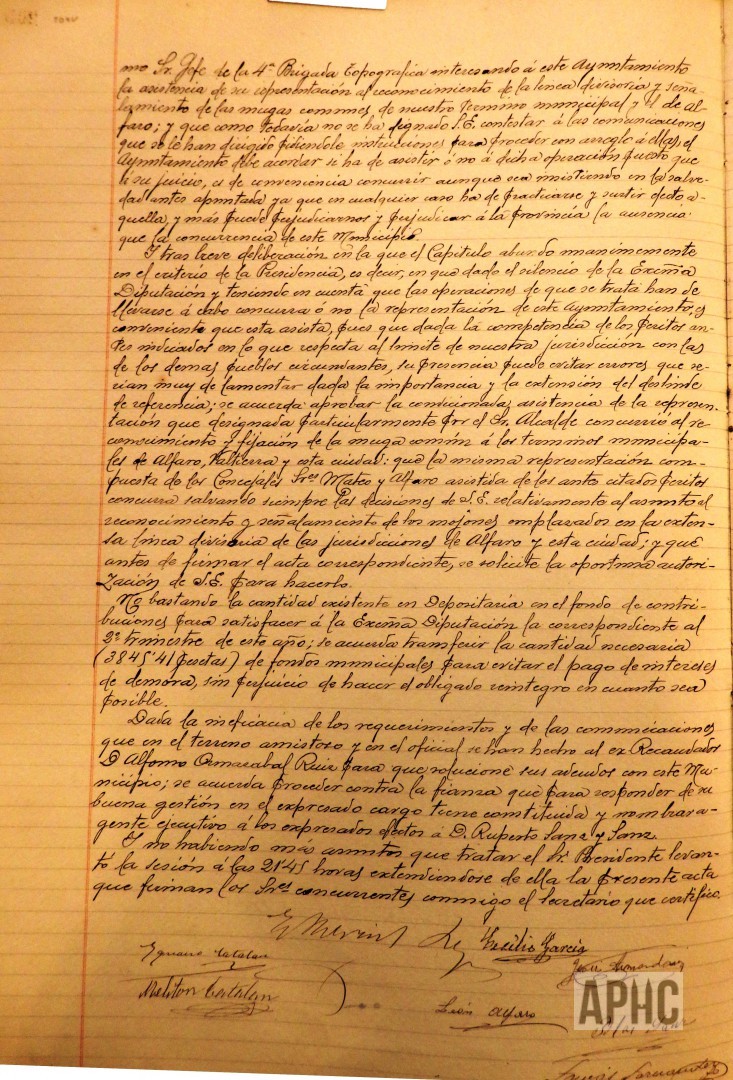 mo Sr. Gefe de la 4ª Brigada topografica interesando á este Ayuntamiento
la asistencia de su representación al reconocimiento de la linea divisoria y seña-
lamiento de las mugas comunes de nuestro termino municipal y el de Al-
faro; y que como todavia no se ha dignado S.E. contestar á las comunicaciones
que se le han dirigido pidiendole instrucciones para proceder con arreglo á ellas, el
Ayuntamiento debe acordar si ha de asistir ó no á dicha operación puesto que
á su juicio, es de conveniencia concurrir aunque sea insistiendo en la salve-
dad antes apuntada ya que en cualquier caso ha de practicarse y surtir efecto a-
quella, y más puede perjudicarnos y perjudicar á la provincia la ausencia
que la concurrencia de este Municipio.
Y tras breve deliberación en la que el Capitulo abundo unanimemente
en el criterio de la Presidencia, es decir, en que dado el silencio de la Excma
Diputación y teniendo en cuenta que las operaciones de que se trata han de
llevarse á cabo concurra ó no la representación de este Ayuntamiento, es
conveniente que esta asista, pues que dada la competencia de los peritos an-
tes indicados en lo que respecta al limite de nuestra jurisdicción con las
de los demas pueblos circundantes, su presencia puede evitar errores que se-
rian muy de lamentar dada la importancia y la extensión del deslinde
de referencia; se acuerda aprobar la condicionada asistencia de la represen-
tación que designada particularmente por el Sr. Alcalde concurrió al re-
conocimiento y fijación de la muga común á los terminos municipa-
les de Alfaro, Valtierra y esta ciudad: que la misma representación com-
puesta de los Concejales Sres Mateo y Alfaro asistida de los antes citados peritos
concurra salvando siempre las decisiones de S.E. relativamente al asunto al
reconocimiento y señalamiento de los mojones emplazados en la exten-
sa linea divisoria de las jurisdicciones de Alfaro y esta ciudad; y que
antes de firmar el acta correspondiente, se solicite la oportuna autori-
zación de S.E. para hacerlo.
No bastando la cantidad existente en Depositaria en el fondo de contri-
buciones para satisfacer á la Excma Diputación la correspondiente al
2º trimestre de este año; se acuerda transferir la cantidad necesaria
(3845'41 pesetas) de fondos municipales para evitar el pago de intereses
de demora, sin perjuicio de hacer el obligado reintegro en cuanto sea
posible.
Dada la ineficacia de los requerimientos y de las comunicaciones
que en el terreno amistoso y en el oficial se han hecho al ex-Recaudador
D Alfonso Ormazabal Ruiz para que solucione sus adeudos con este Mu-
nicipio; se acuerda proceder contra la fianza que para responder de su
buena gestión en el expresado cargo tiene constituida y nombrar a-
gente ejecutivo á los expresados efectos á D. Ruperto Sanz y Sanz.
Y no habiendo más asuntos que tratar el Sr. Presidente levan-
tó la sesión á las 21'45 horas extendiendose de ella la presente acta
que firman los Sres concurrentes conmigo el secretario que certifico.
Cecilio Garcia
Catalan
Meliton Catalan
León Alfaro
APHC